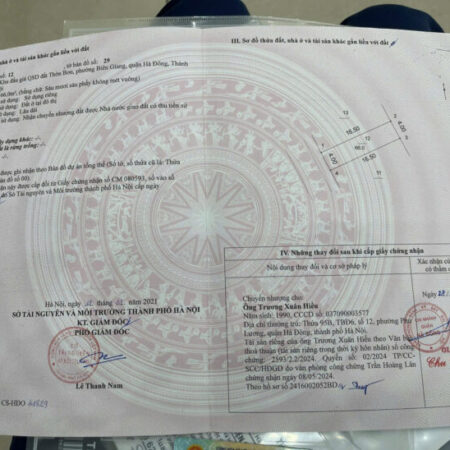 nhà ở và tài sản khác gắn liền với đất
số: 12 , tờ bản đồ số: 29
Khu đấu giá QSD đất Thôn Bơn, phường Biên Giang, quận Hà Đông, Thành
66,0m², (bằng chữ: Sáu mươi sáu phẩy không mét vuông)
sử dụng: Sử dụng riêng
sử dụng: Đất ở tại đô thị
sử dụng: Lâu dài
sử dụng: Nhận chuyển nhượng đất được Nhà nước giao đất có thu tiền sử
dựng khác: -/-.
là rừng trồng: -/-.
được ghi nhận theo Bản đồ dự án tổng thể (Số tờ, số thửa cũ là: Thửa
đồ số 00).
này được cấp đổi từ Giấy chứng nhận số CM 080593, số vào sổ
do Sở Tài nguyên và Môi trường thành phố Hà Nội cấp ngày
Hà Nội, ngày tháng năm 2021
SỞ TÀI NGUYÊN VÀ MÔI TRƯỜNG THÀNH PHỐ HÀ NỘI
KT. GIÁM ĐỐC
PHÓ GIÁM ĐỐC
Lê Thanh Nam
CS-HĐO
III. Sơ đồ thửa đất, nhà ở và tài sản khác gắn liền với đất
16,50
4,00
12
4,00
16,50
IV. Những thay đổi sau khi cấp giấy chứng nhận
Nội dung thay đổi và cơ sở pháp lý
Xác nhận của
có thẩm
Chuyển nhượng cho:
Ông Trương Xuân Hiếu
Năm sinh: 1990, CCCD số: 037090003577
Địa chỉ thường trú: Thôn 95B, TBĐ6, số 12, phường Phú
Lương, quận Hà Đông, thành phố Hà Nội.
Tài sản riêng của ông Trương Xuân Hiếu theo Văn bản
thoả thuận (tài sản riêng trong thời kỳ hôn nhân) số công
chứng: 2593/2.2/2024. Quyển số: 02/2024 TP/CC-
SCC/HĐGD do văn phòng công chứng Trần Hoàng Lân
chứng nhận ngày 08/05/2024.
Theo hồ sơ số
Ngày